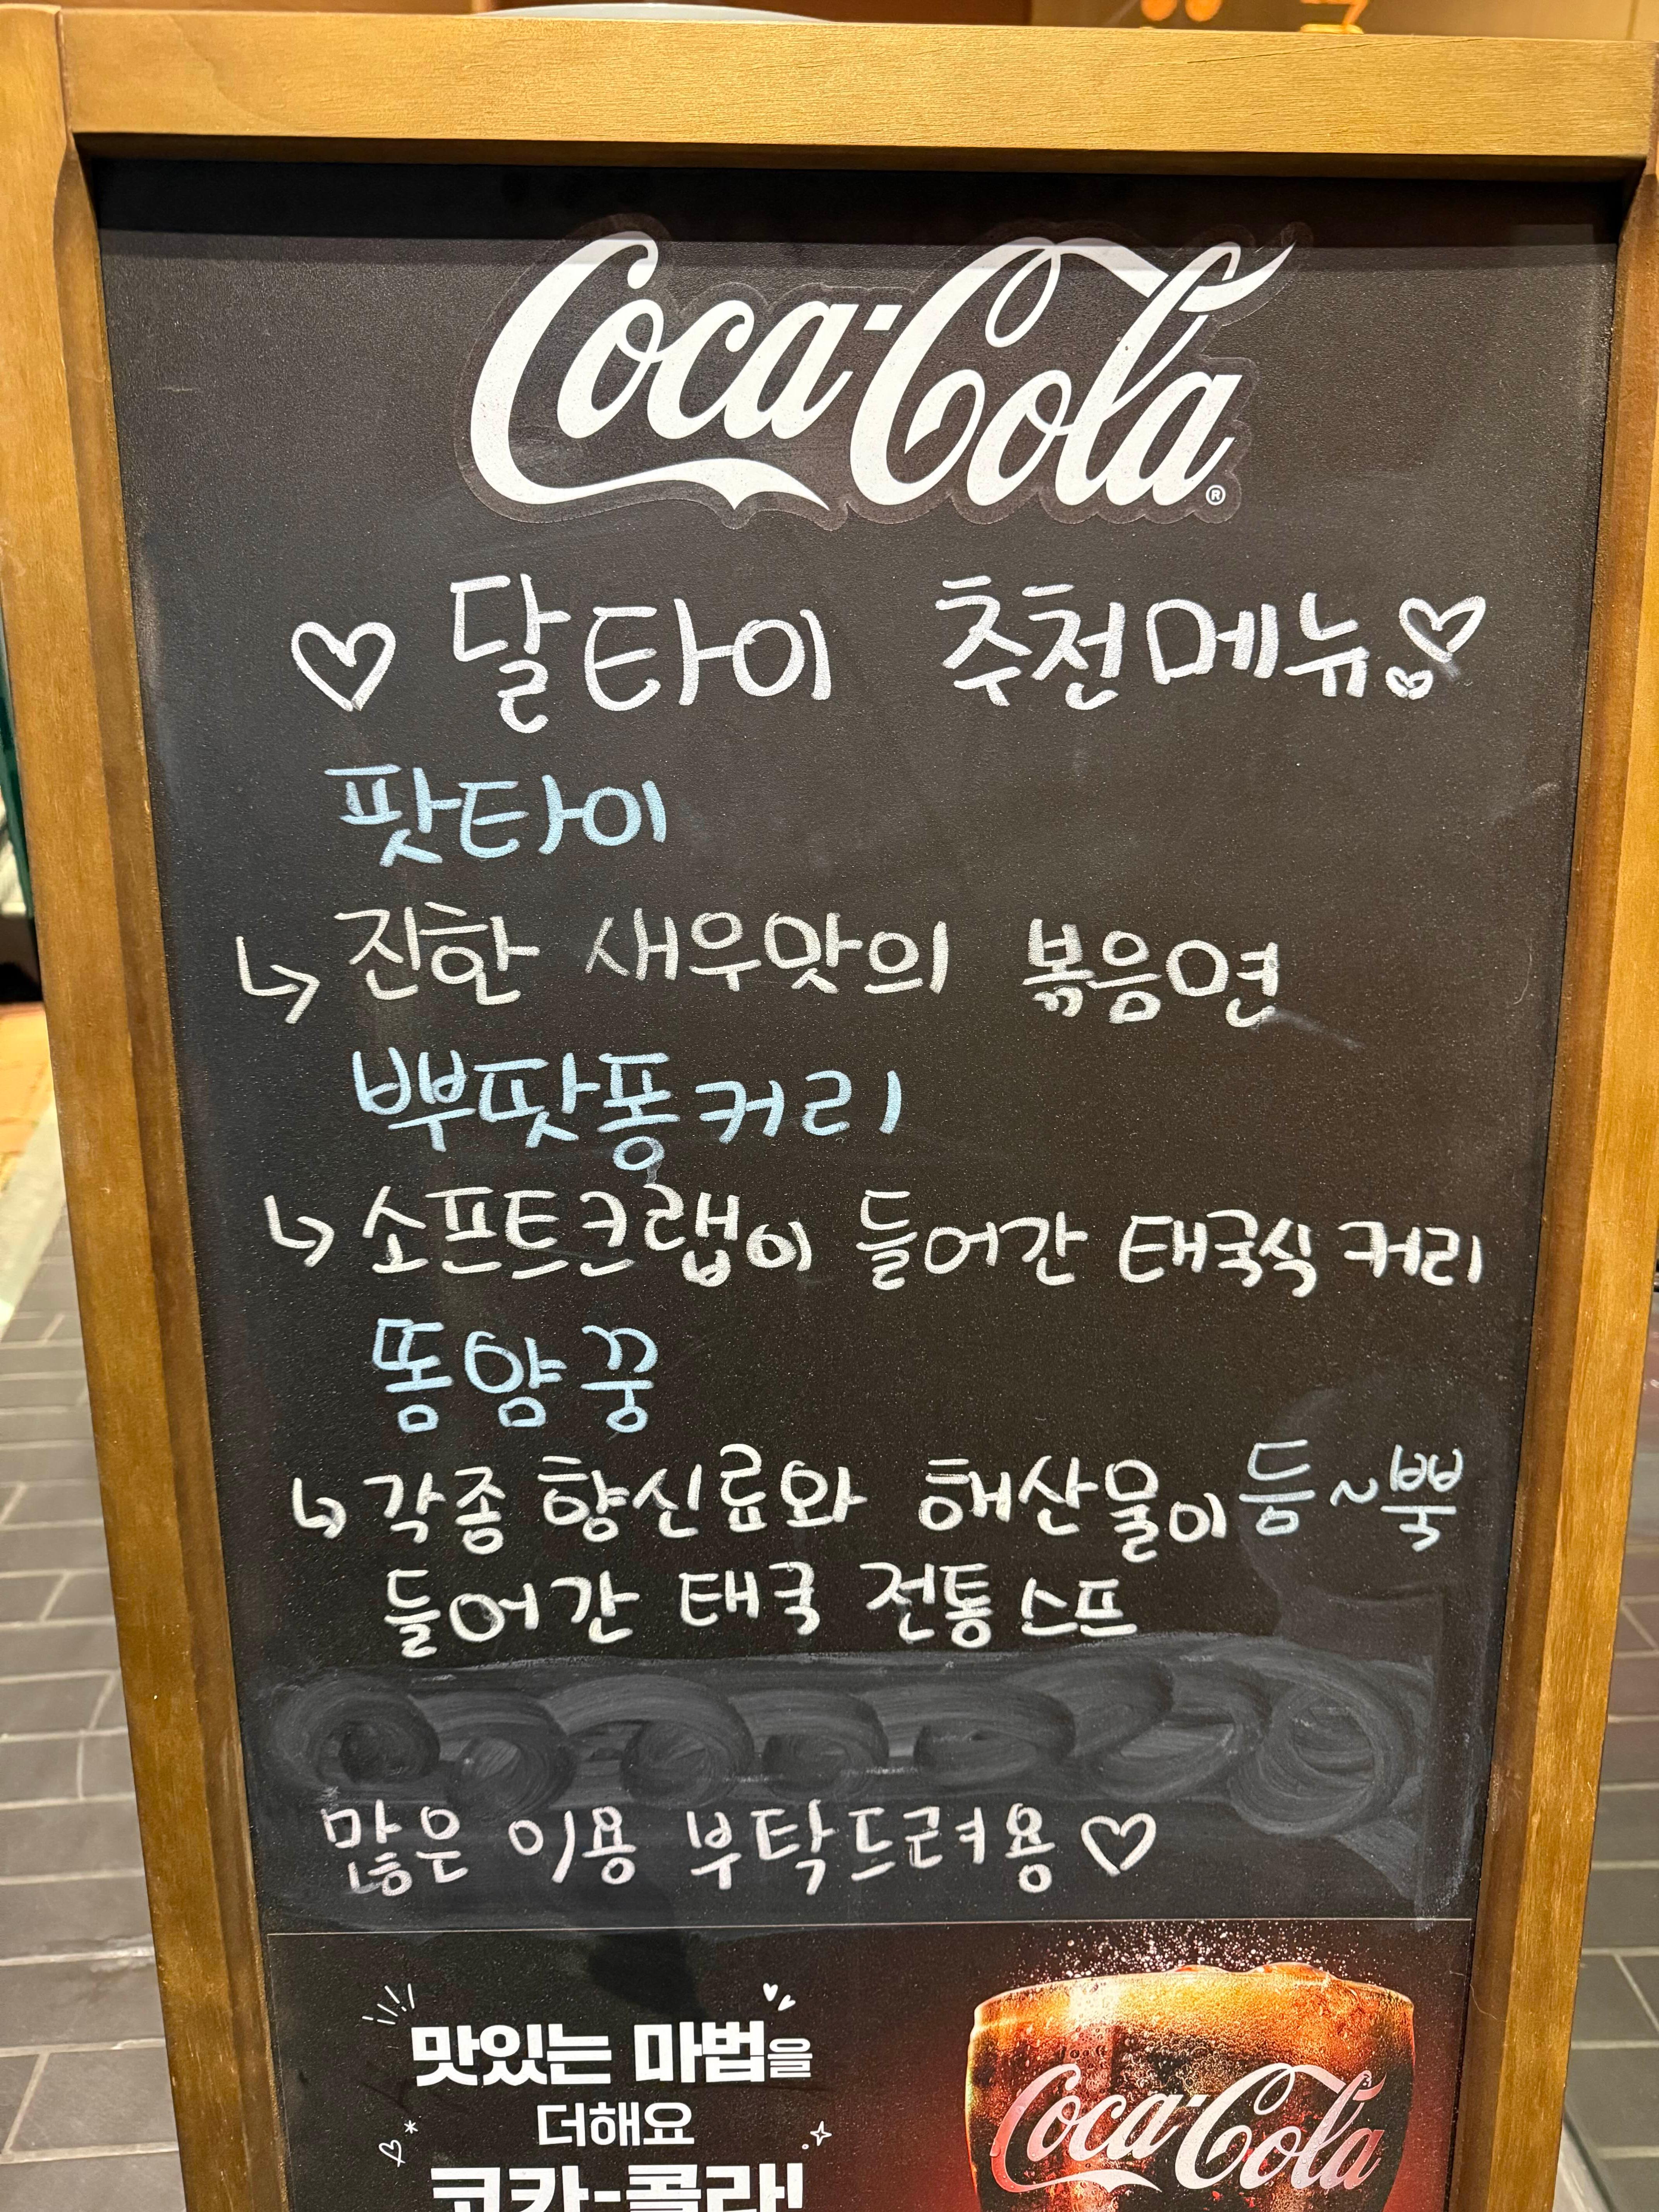 Coca-Cola®
♡ 달타이 추천메뉴♡
팟타이
↳ 진한 새우맛의 볶음면
뿌팟퐁커리
↳ 소프트크랩이 들어간 태국식 커리
똠얌꿍
↳ 각종 향신료와 해산물이 듬~뿍
들어간 태국 전통 스프
많은 이용 부탁드려용♡
맛있는 마법을
더해요
코카-콜라!
Coca-Cola